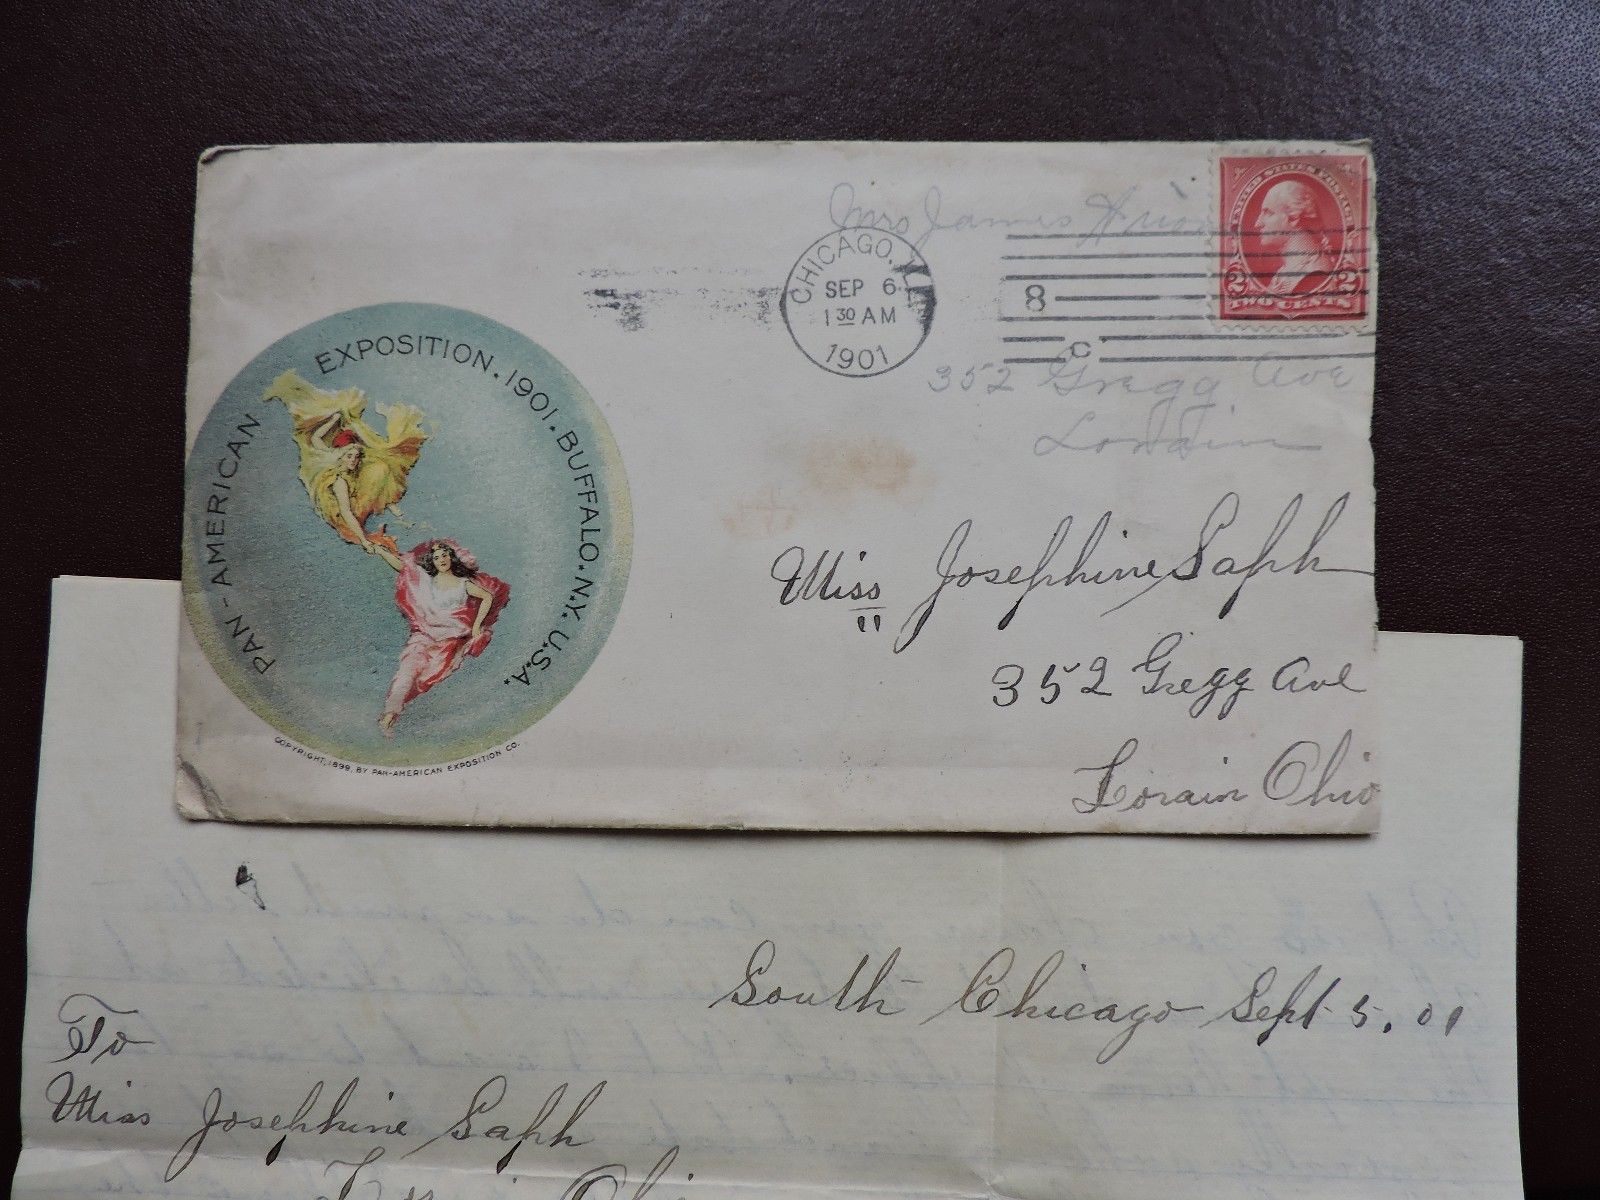 Mrs James
UNITED STATES POSTAGE
2 2
TWO CENTS
CHICAGO, ILL.
SEP 6
1 30 AM
1901
8
C
352 Gregg Ave
PAN-AMERICAN EXPOSITION. 1901. BUFFALO. N.Y. U.S.A.
COPYRIGHT, 1899, BY PAN-AMERICAN EXPOSITION CO.
Miss Josephine Saph
352 Gregg Ave
Lorain Ohio
South Chicago Sept 5. 01
To
Miss Josephine Saph